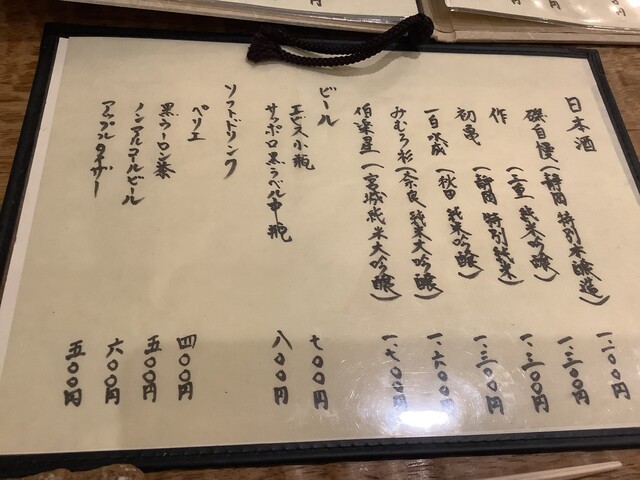 日本酒
磯自慢(静岡 特別本醸造) 一、000円
作(三重 純米吟醸) 一、三00円
初亀(静岡 特別純米) 一、三00円
一白水成(秋田 純米吟醸) 一、三00円
みむろ杉(奈良 純米大吟醸) 一、六00円
伯楽星(宮城 純米大吟醸) 一、七00円
ビール
エビス小瓶 七00円
サッポロ黒ラベル中瓶 八00円
ソフトドリンク
ペリエ 四00円
黒ウーロン茶 五00円
ノンアルコールビール 六00円
アップルタイザー 五00円